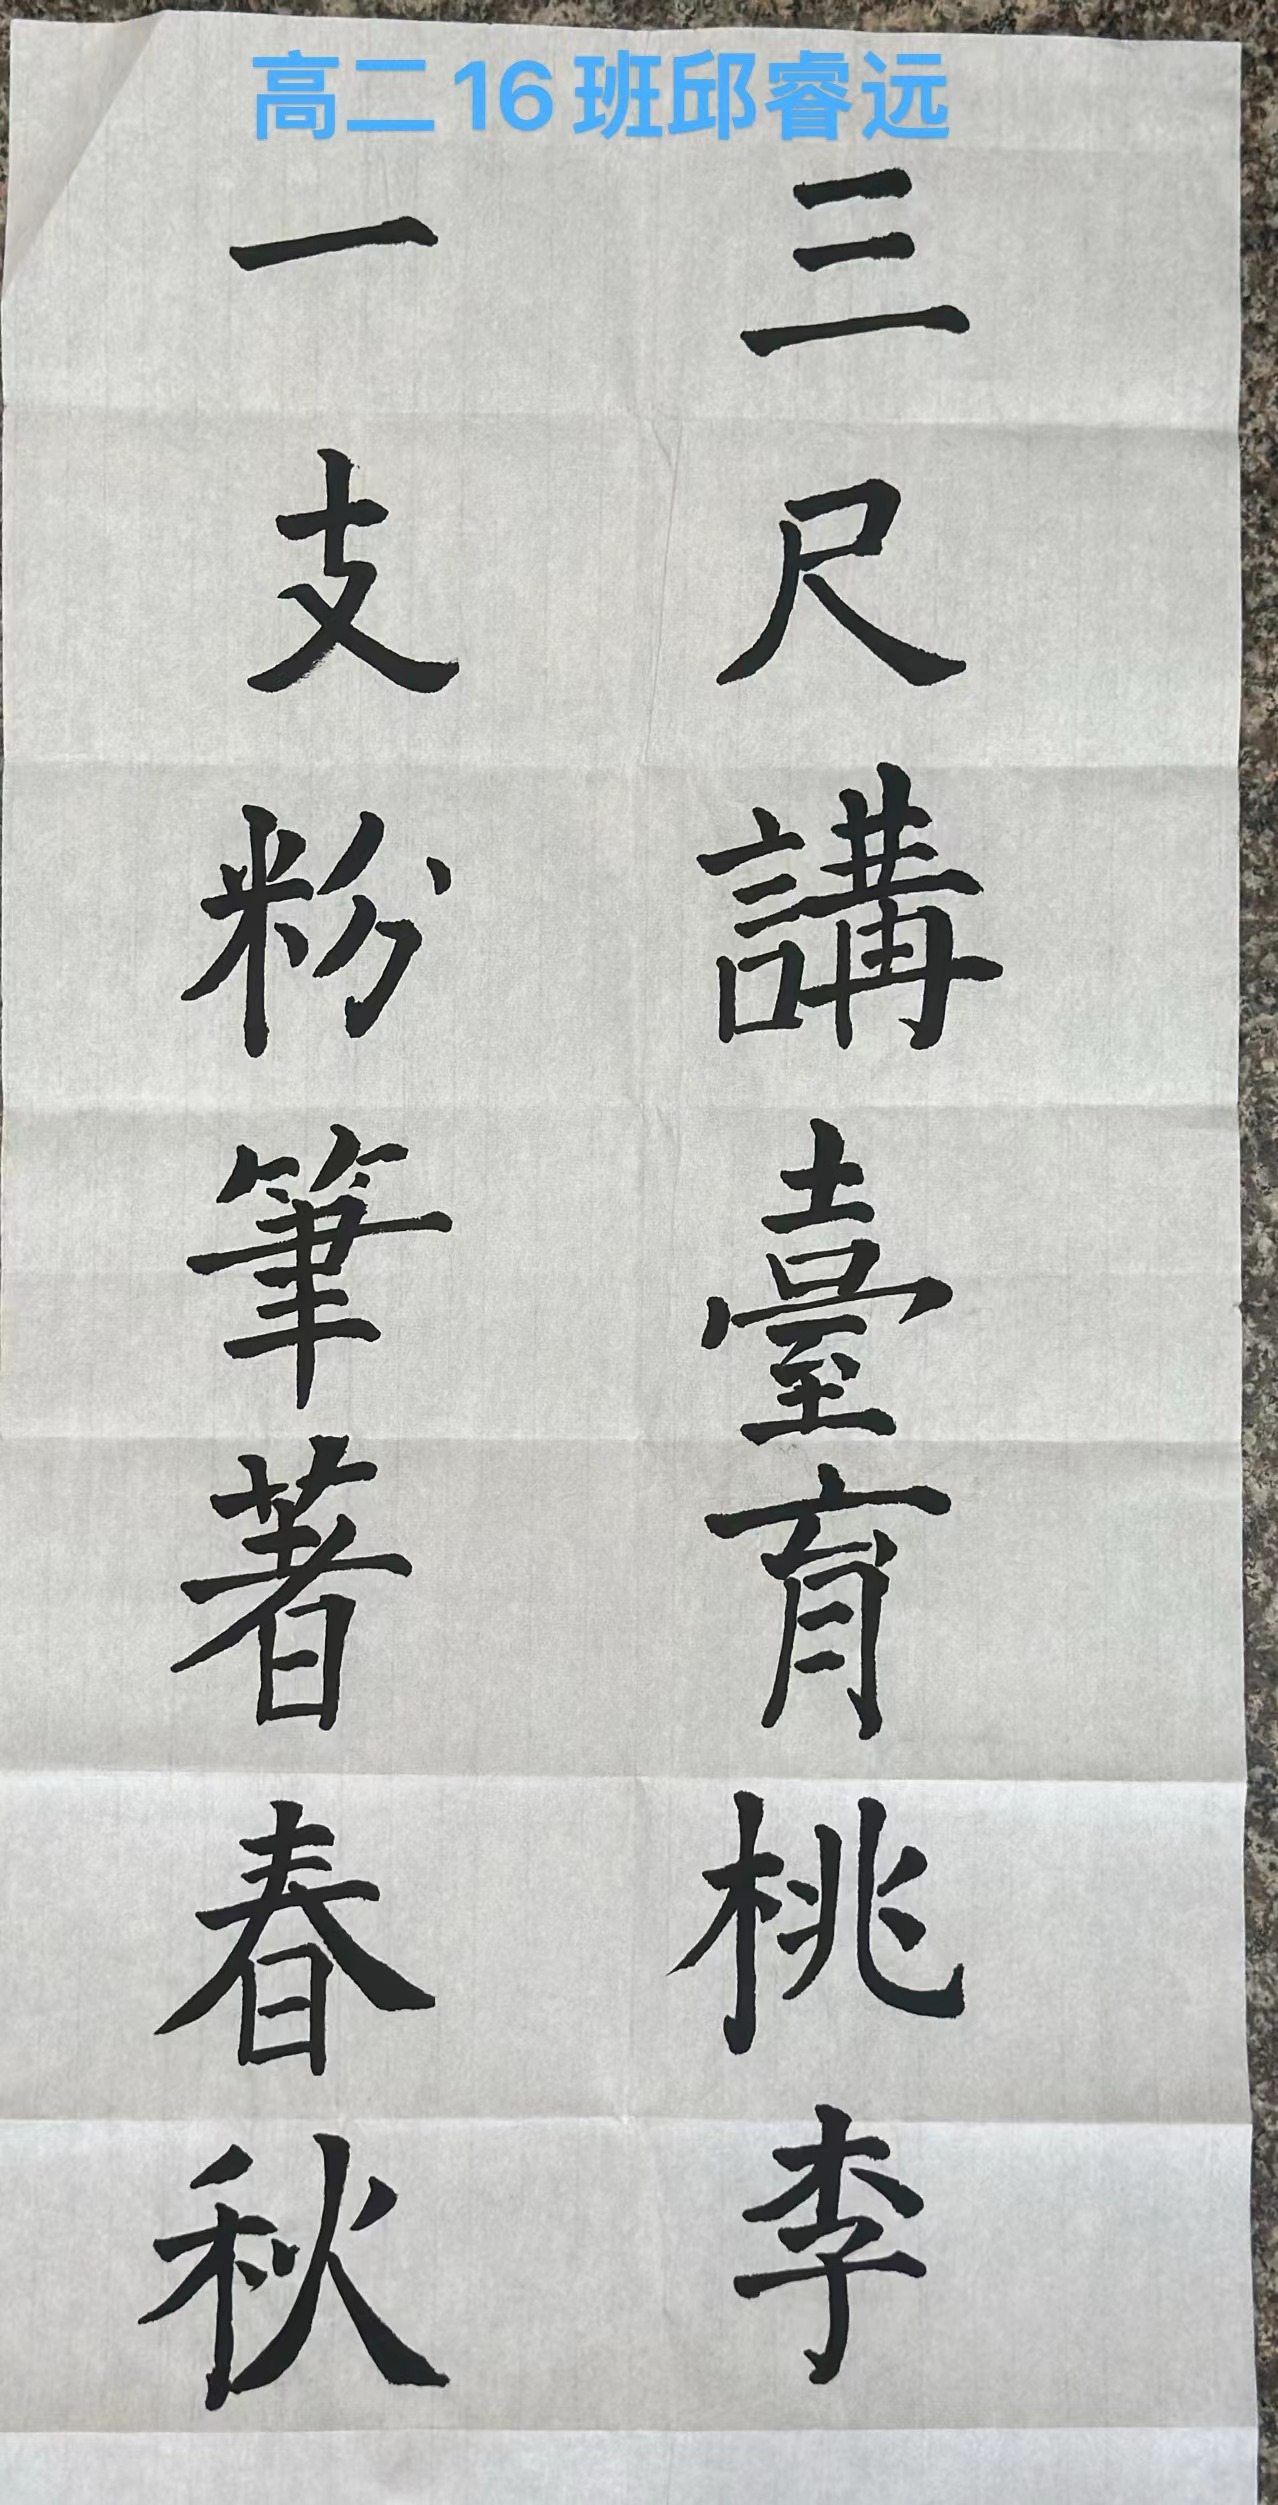 高二16班邱睿远
三尺講臺育桃李
一支粉筆著春秋